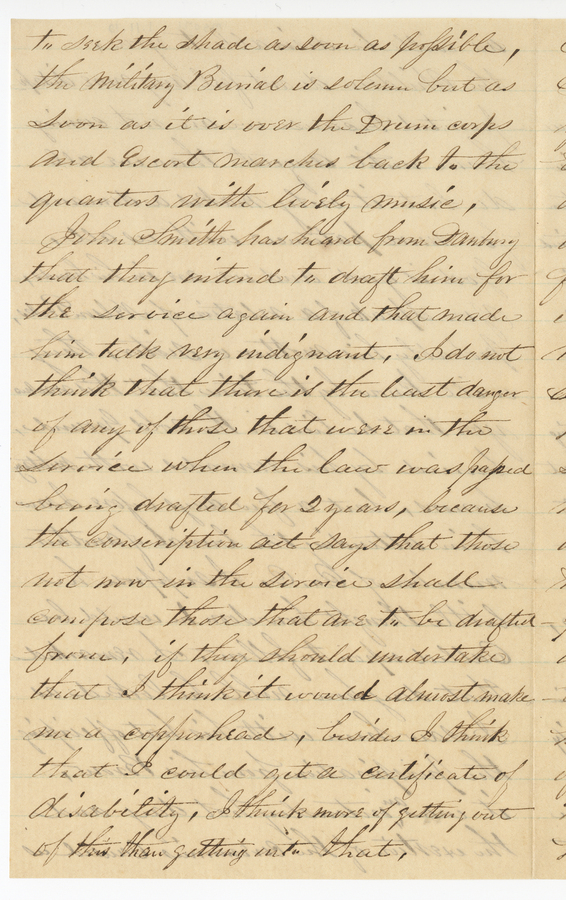 to seek the shade as soon as possible,
the Military Burial is solemn but as
soon as it is over the Drum corps
and Escort marches back to the
quarters with lively music,
John Smith has heard from Danbury
that they intend to draft him for
the service again and that made
him talk very indignant, I do not
think that there is the least danger
of any of those that were in the
service when the law was passed
being drafted for 2 years, because
the conscription act says that those
not now in the service shall
compose those that are to be drafted
from, if they should undertake
that I think it would almost make
me a copperhead, besides I think
that I could get a certificate of
disability, I think more of getting out
of this than getting into that,